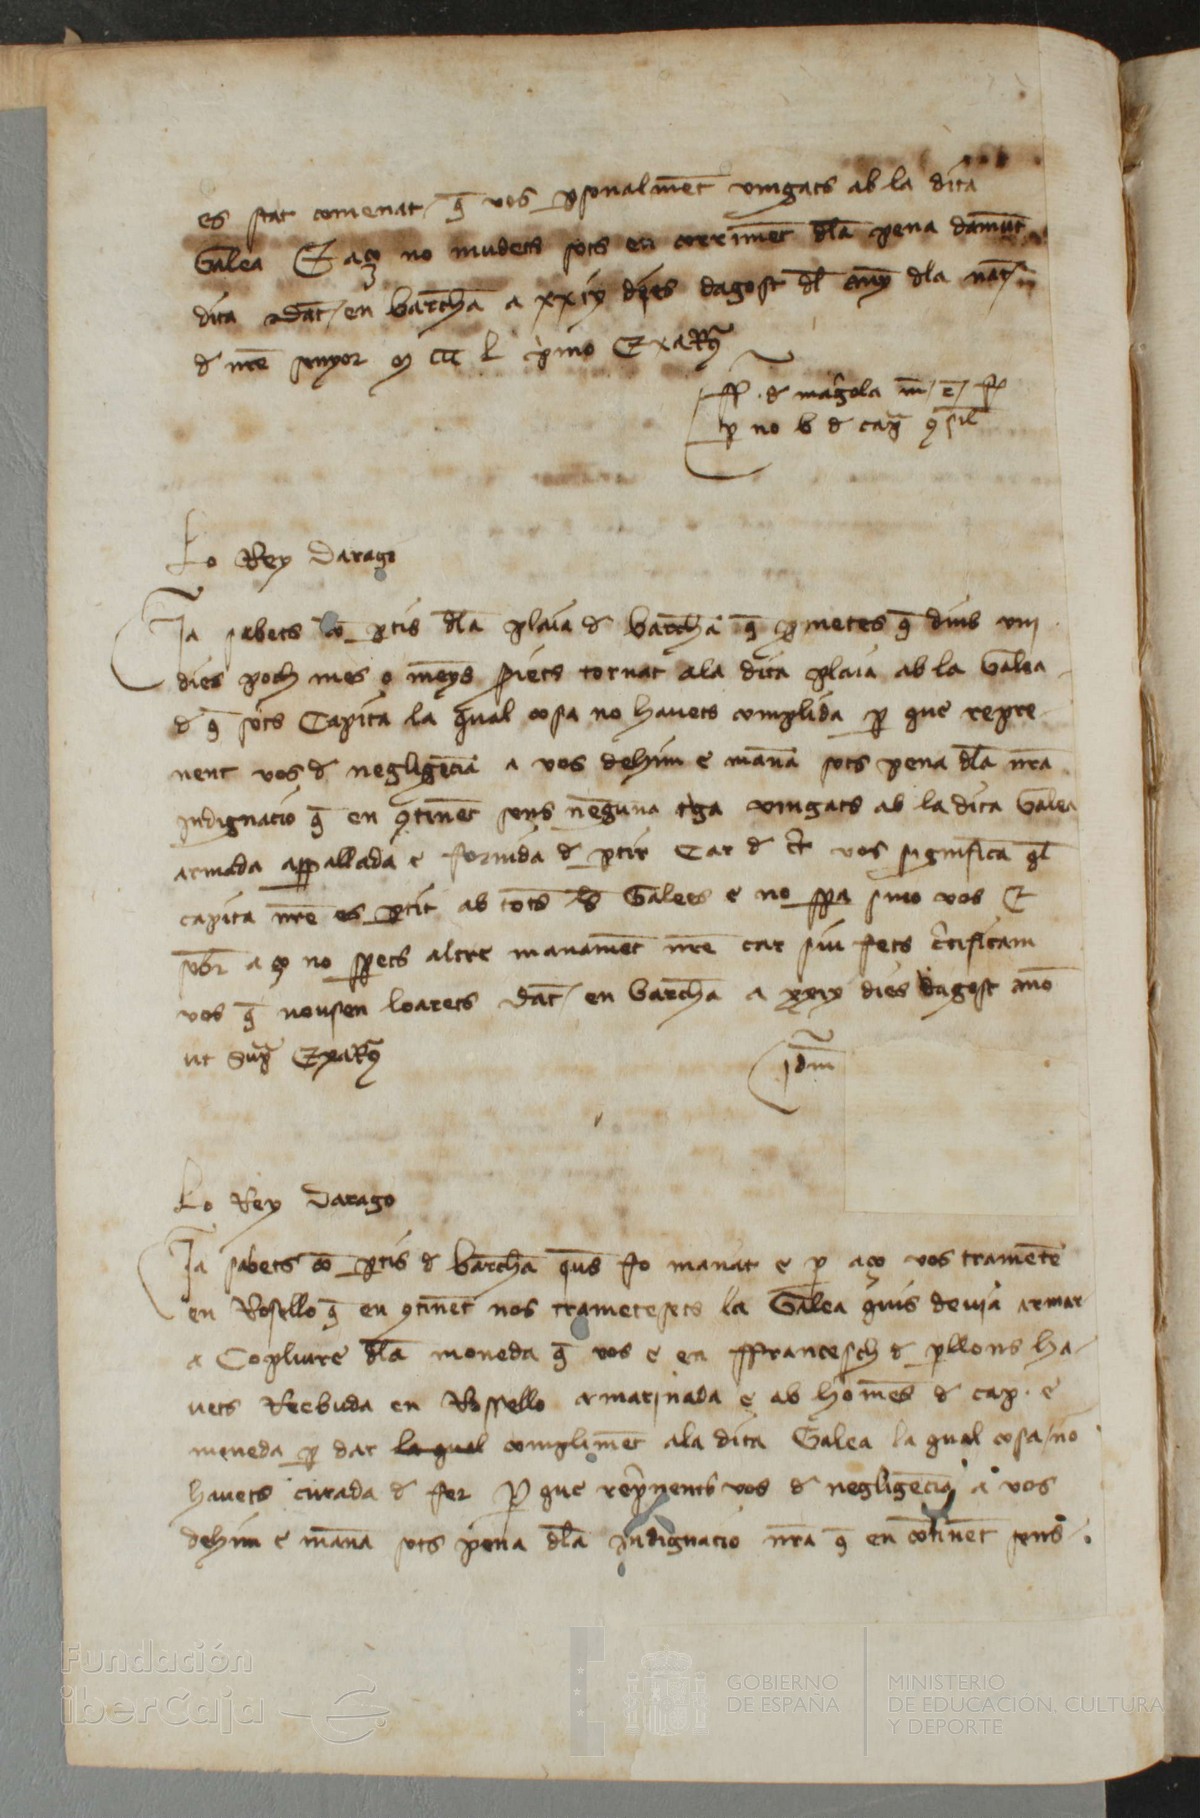 es stat comenat / q̄ vos ꝑsonalmēt vingats ab la dita
Galea E aço no mudets sots en corrimēt dl̄a pena damūt
dita Dat̄ / en barchn̄a a xxix dies dagost dl̄ any dla nat̄
d nr̄e senyor M CCC L primo Exar̄
ff . d mag̃ola
ꝑ no b d cap̄
Lo Rey Darago
Ja sabets cō ꝑtis dl̄a plaia d barchn̄a q̄ ꝓmetes q̄ dins viii
dies poch mes o mēys siets tornat ala dita plaia ab la Galea
d q̄ sots Capita la qual cosa no havets complida ꝑ que repre
nent vos d negligēcia a vos dehim e manā sots pena dl̄a nr̄a
indignacio q̄ en ꝯtinēt sens nēguna t̃ga vingats ab la dita Galea
armada appallada e fornida d ꝑtir Car d ct̄ vos significā ql̄
capita nr̄e es ꝑtit ab tots ls Galees e no spa sino vos E
sobr̄ aço no spets altre manamēt nr̄e car siu fets c̃tificam
vos q̄ nousen loarets Dat̄ / en barchn̄a a xxix dies dagost āno
ut Sup̃ Exar̄
Idm̄
Lo Rey Darago
Ja sabets cō ꝑtis d barchn̄a quus fo manat e ꝑ aço vos trametē
en Rosello q̄ en ꝯtinēt nos trametesets la Galea quis devia armar
a Copliure dl̄a moneda q̄ vos e en ffrancesch d ꝑllons ha-
vets Reebuda en Rossello armarinada e ab homēs d cap . e
moneda ꝑ dar la qual complimēt ala dita Galea la qual cosa / no
havets curada d fer ꝑ que repr̃nents vos d negligēcia a vos
dehim e manā sots pena dl̄a indignacio nr̄a q̄ en cōtinēt sens
Fundación
iberCaja
GOBIERNO
DE ESPAÑA
MINISTERIO
DE EDUCACIÓN, CULTURA
Y DEPORTE